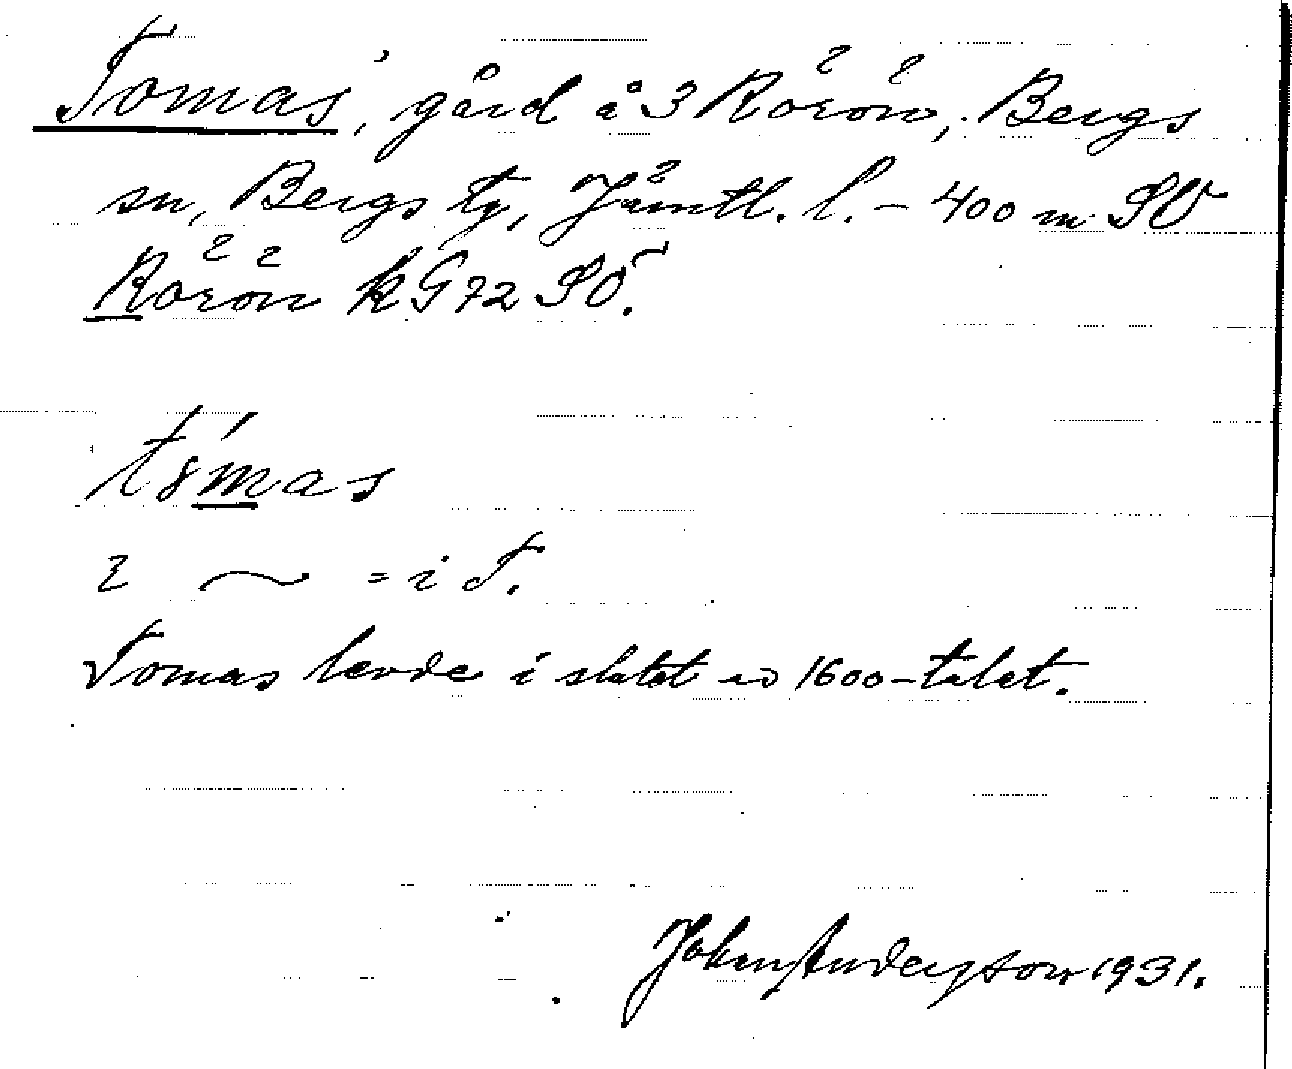 Tomas', gård å 3 Rörön, Bergs
sn, Bergs tg, Jämtl. l. – 400 m SV
Rörön k G72 SO.
tómas
i ~ = i T.
Tomas levde i slutet av 1600-talet.
Johan Anderson 1931.